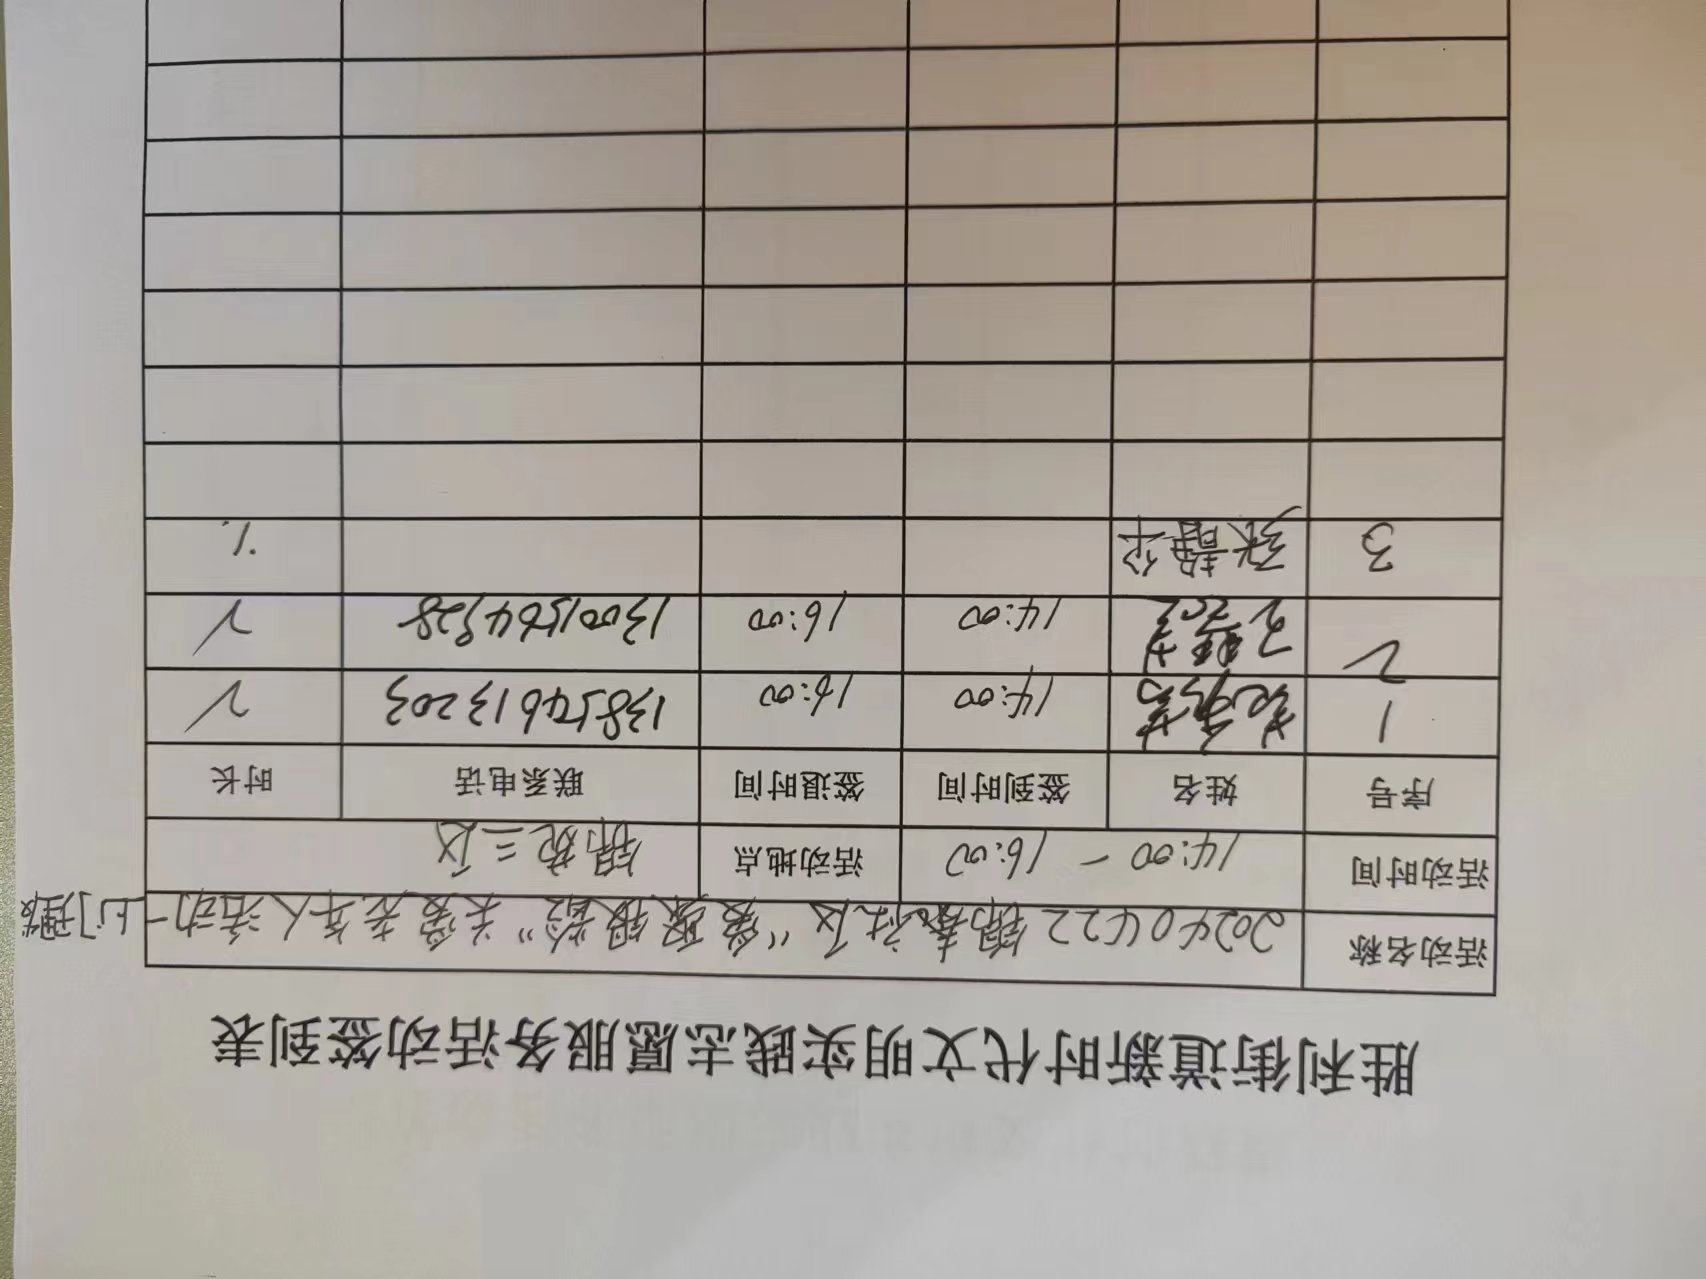 胜利街道新时代文明实践志愿服务活动签到表
活动名称 20240422锦春社区“爱聚银龄”关爱老年人活动—上门理发
活动时间 14:00 - 16:00 活动地点 锦苑三区
序号 姓名 签到时间 签退时间 联系电话 时长
1 14:00 16:00 13854613203 2
2 14:00 16:00 13001564928 2
3